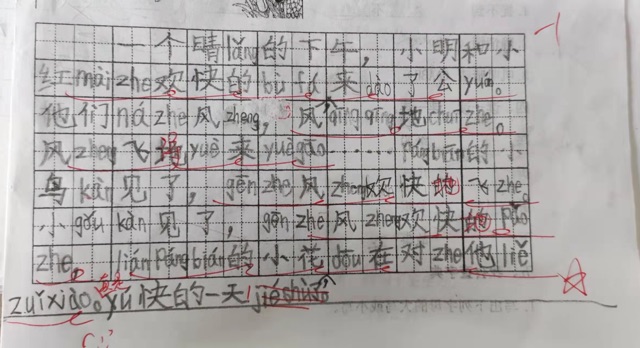 一个晴lǎng的下午，小明和小
红mài zhe欢快的bù fá来dào了公yuán。
他们ná zhe风zheng，风qīng qīng地chuī zhe。
风zheng飞得yuè来yuè gāo……páng biān的小
鸟kàn见了，gēn zhe风zheng欢快的飞zhe。
小gǒu kàn见了，gēn zhe风zheng欢快的pǎo
zhe。lián páng biān的小花dōu在对zhe他liě
zuǐ xiào。yú快的一天jié shù了